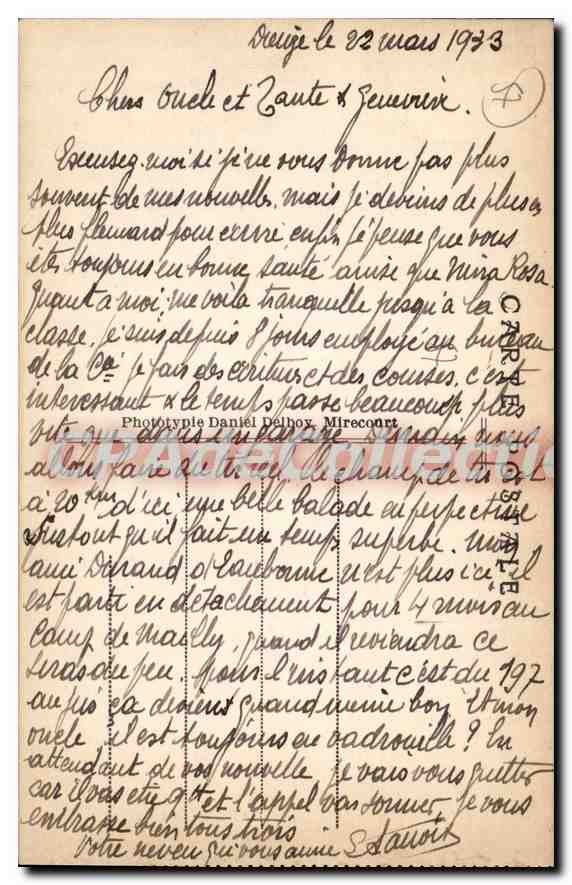 Dieuze le 22 mars 1933
Chers Oncle et Tante & Geneviève.
Excusez-moi si je ne vous donne pas plus
souvent de mes nouvelles, mais je deviens de plus en
plus flemard pour écrire enfin je pense que vous
êtes toujours en bonne santé ainsi que Rosa.
Quant à moi, me voilà tranquille jusqu'à la
classe. Je suis depuis 8 jours employé au bureau
de la Cie je fais des écritures et des courses, c'est
interessant & le temps passe beaucoup plus
vite que dans Demain nous
allons faire du tir, le champ de tir est
à 20 km d'ici une belle balade en perspective
surtout qu'il fait un temps superbe. Mon
ami Durand d'Eaubonne n'est plus ici il
est parti en détachement pour 4 mois au
camp de Mailly, quand il reviendra ce
seras du peu. pour l'instant c'est du 197
au jus ça devient quand même bon. Et mon
oncle, il est toujours en vadrouille? En
attendant de vos nouvelle je vais vous quitter
car il vas etre 9h et l'appel vas sonner, je vous
embrasse bien tous trois
Votre neveu qui vous aime
CARTE POSTALE
Phototypie Daniel Delboy, Mirecourt
CPACollection